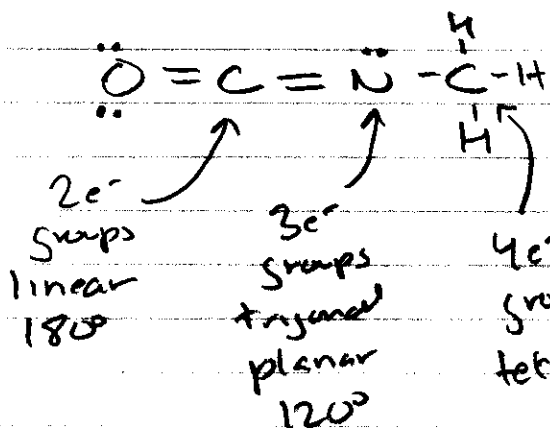 H
:Ö = C = N̈ - C - H
H
2e⁻
groups
linear
180°
3e⁻
groups
trigonal
planar
120°
4e⁻
gro
tet